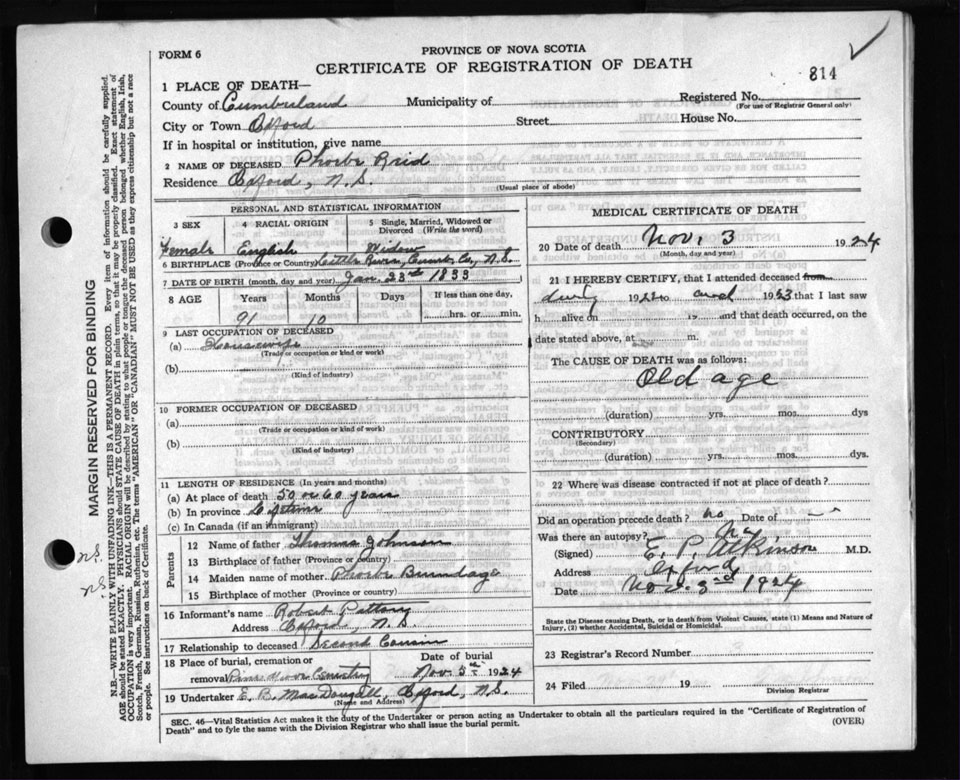 FORM 6
PROVINCE OF NOVA SCOTIA
CERTIFICATE OF REGISTRATION OF DEATH
814
1 PLACE OF DEATH—
County of Cumberland Municipality of
Registered No.
(For use of Registrar General only)
City or Town Oxford Street House No.
If in hospital or institution, give name
2 NAME OF DECEASED Phoebe Reid
Residence Oxford, N.S.
(Usual place of abode)
PERSONAL AND STATISTICAL INFORMATION
3 SEX 4 RACIAL ORIGIN 5 Single, Married, Widowed or Divorced (Write the word)
Female English Widow
6 BIRTHPLACE (Province or Country) Little River, Cumb. Co, N.S.
7 DATE OF BIRTH (month, day and year) Jan. 23rd 1833
8 AGE Years Months Days If less than one day,
91 10 hrs. or min.
9 LAST OCCUPATION OF DECEASED
(a) Housewife
(Trade or occupation or kind or work)
(b)
(Kind of industry)
10 FORMER OCCUPATION OF DECEASED
(a)
(Trade or occupation or kind or work)
(b)
(Kind of industry)
11 LENGTH OF RESIDENCE (In years and months)
(a) At place of death 50 or 60 years
(b) In province Lifetime
(c) In Canada (if an immigrant)
Parents
12 Name of father Thomas Johnson
13 Birthplace of father (Province or country)
14 Maiden name of mother Phoebe Bundage
15 Birthplace of mother (Province or country)
16 Informant's name Robert
Address Oxford, N.S.
17 Relationship to deceased Second Cousin
18 Place of burial, cremation or removal Cemetery
Date of burial Nov 5th 1924
19 Undertaker E. B. MacDougall, Oxford, N.S.
(Name and Address)
MEDICAL CERTIFICATE OF DEATH
20 Date of death Nov. 3 1924
(Month, day and year)
21 I HEREBY CERTIFY, that I attended deceased from
1922 and 1923 that I last saw
h alive on 19 and that death occurred, on
date stated above, at m.
The CAUSE OF DEATH was as follows:
Old age
(duration) yrs. mos. dys
CONTRIBUTORY
(Secondary)
(duration) yrs. mos. dys.
22 Where was disease contracted if not at place of death?
Did an operation precede death? No Date of
Was there an autopsy? No
(Signed) E. P. Atkinson M.D.
Address Oxford
Date Nov. 3rd 1924
State the Disease causing Death, or in death from Violent Causes, state (1) Means and Nature of
Injury, (2) whether Accidental, Suicidal or Homicidal.
23 Registrar's Record Number
24 Filed 19
Division Registrar
SEC. 46—Vital Statistics Act makes it the duty of the Undertaker or person acting as Undertaker to obtain all the particulars required in the "Certificate of Registration of
Death" and to fyle the same with the Division Registrar who shall issue the burial permit.
(OVER)
MARGIN RESERVED FOR BINDING
N.B.—WRITE PLAINLY WITH UNFADING INK.—THIS IS A PERMANENT RECORD. Every item of information should be carefully supplied.
AGE should be stated EXACTLY. PHYSICIANS should STATE CAUSE OF DEATH in plain terms, so that it may be properly classified. Exact statement of
OCCUPATION is very important. RACIAL ORIGIN will be described by stating to what people or tongue the deceased person belonged whether English, Irish,
Scotch, French, German, Russian, Ruthenian, etc. The terms "AMERICAN" OR "CANADIAN" MUST NOT BE USED as they express citizenship but not a race
or people. See instructions on back of Certificate.
n.s.
n.s.